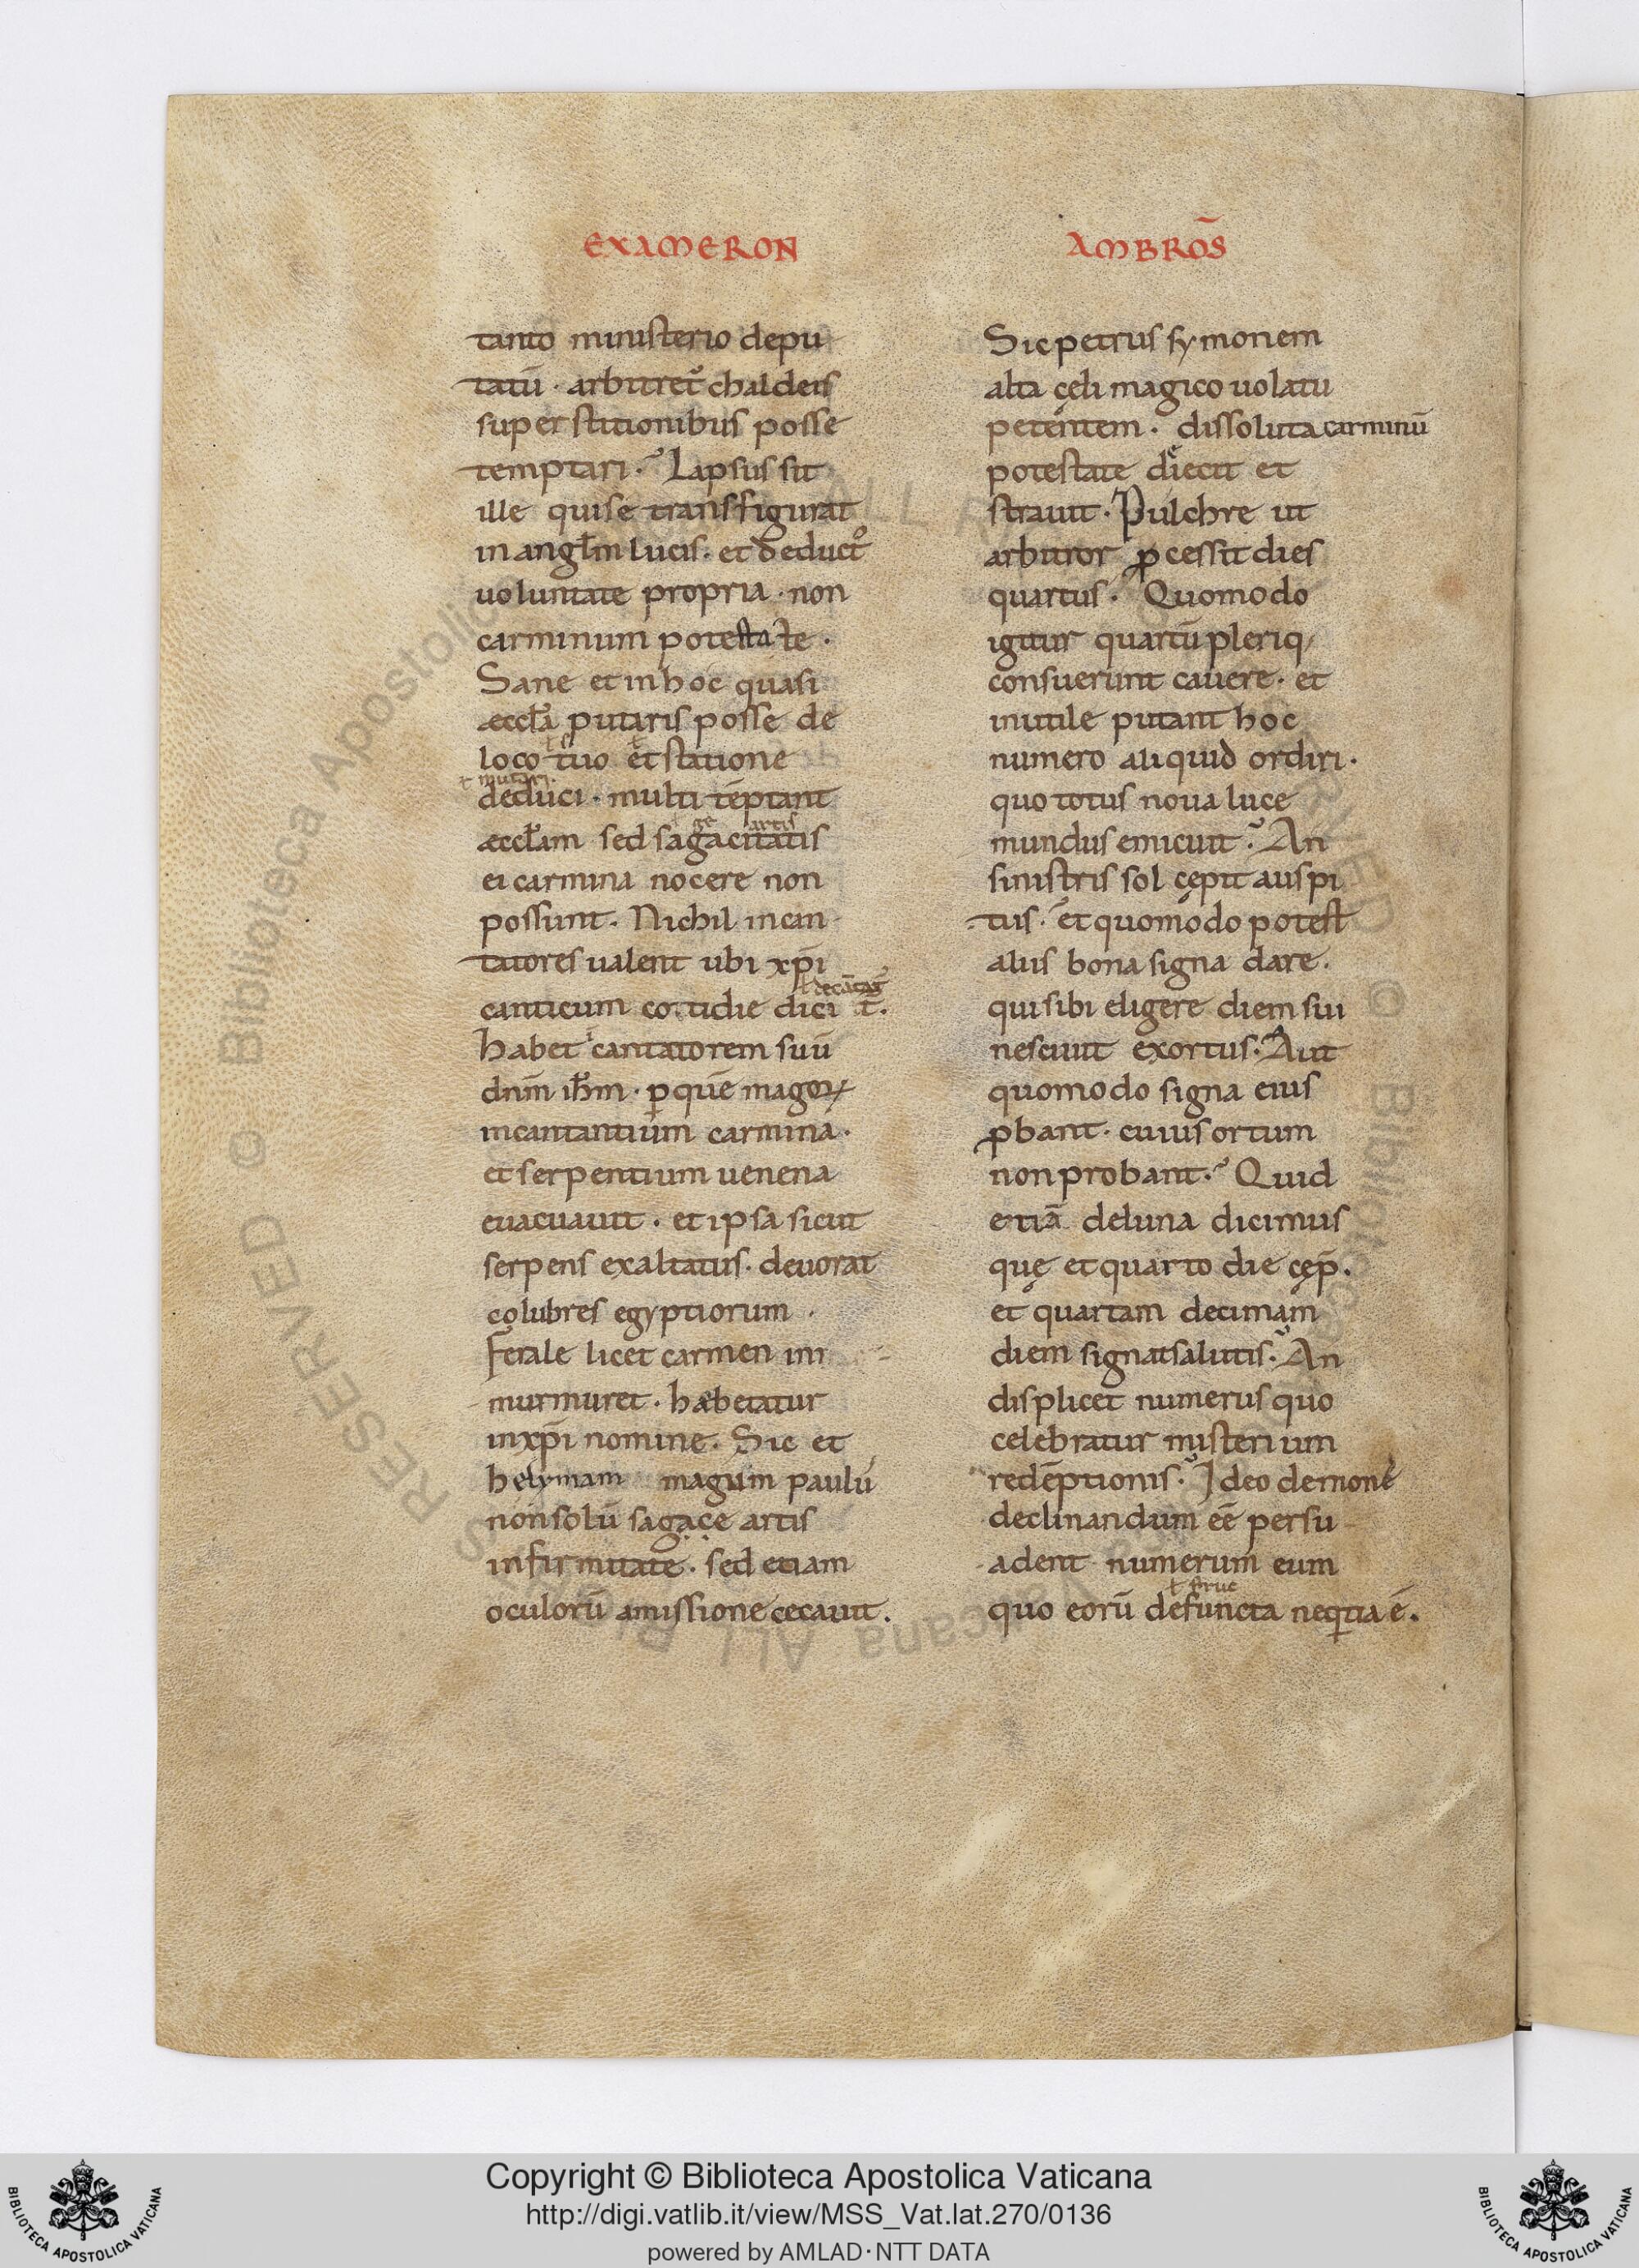 EXAMERON
tanto ministerio depu
tatū · arbitret᷒ chaldeis
superstitionibus posse
temptari. Lapsus sit
ille qui se transfigurat
in angłm lucis. et deductꝰ
uoluntate propria · non
carminum potestate .
Sane et in hoc quasi
æccła putaris posse de
loco tuo et statione
ł mutari.
deduci · multi tēptant
ge artis
æccłam sed sagacitatis
ei carmina nocere non
possunt. Nichil incan
tatores ualent ubi xp̄i
ł decātat᷒
canticum cotidie dicit᷒.
habet cantatorem suū
dn̄m ih̄m · ꝑ quē magoꝝ
incantantium carmina .
et serpentium uenena
euacuauit . et ipsa sicut
serpens exaltatus. deuorat
colubres egyptiorum .
Ferale licet carmen im
murmuret . hebetatur
in xp̄i nomine. Sic et
helymam magum paulū
non solū sagace artis
infirmitate. sed etiam
oculorū amissione cecauit.
AMBROS̄
Sic petrus symonem
alta cęli magico uolatu
petentem . dissoluta carminū
potestate diecit et
strauit. Pulchre ut
arbitror ꝓcessit dies
quartus. Quomodo
igitur quartū pleriq;
consuerunt cauere. et
inutile putant hoc
numero aliquid ordiri.
quo totus noua luce
mundus emicuit. An
sinistris sol cępit auspi
tiis. et quomodo potest
aliis bona signa dare.
qui sibi eligere diem sui
nesciuit exortus. Aut
quomodo signa eius
ꝓbant. cuius ortum
non probant. Quid
etiā de luna dicimus
quę et quarto die cęp̄.
et quartam decimam
diem signat salutis. An
displicet numerus quo
celebratur misterium
redēptionis. Ideo demone
declinandum eē persu
adent numerum eum
ł strue
quo eorū defuncta neqͥtia ē.
Copyright © Biblioteca Apostolica Vaticana
http://digi.vatlib.it/view/MSS_Vat.lat.270/0136
powered by AMLAD·NTT DATA
BIBLIOTECA APOSTOLICA VATICANA
BIBLIOTECA APOSTOLICA VATICANA